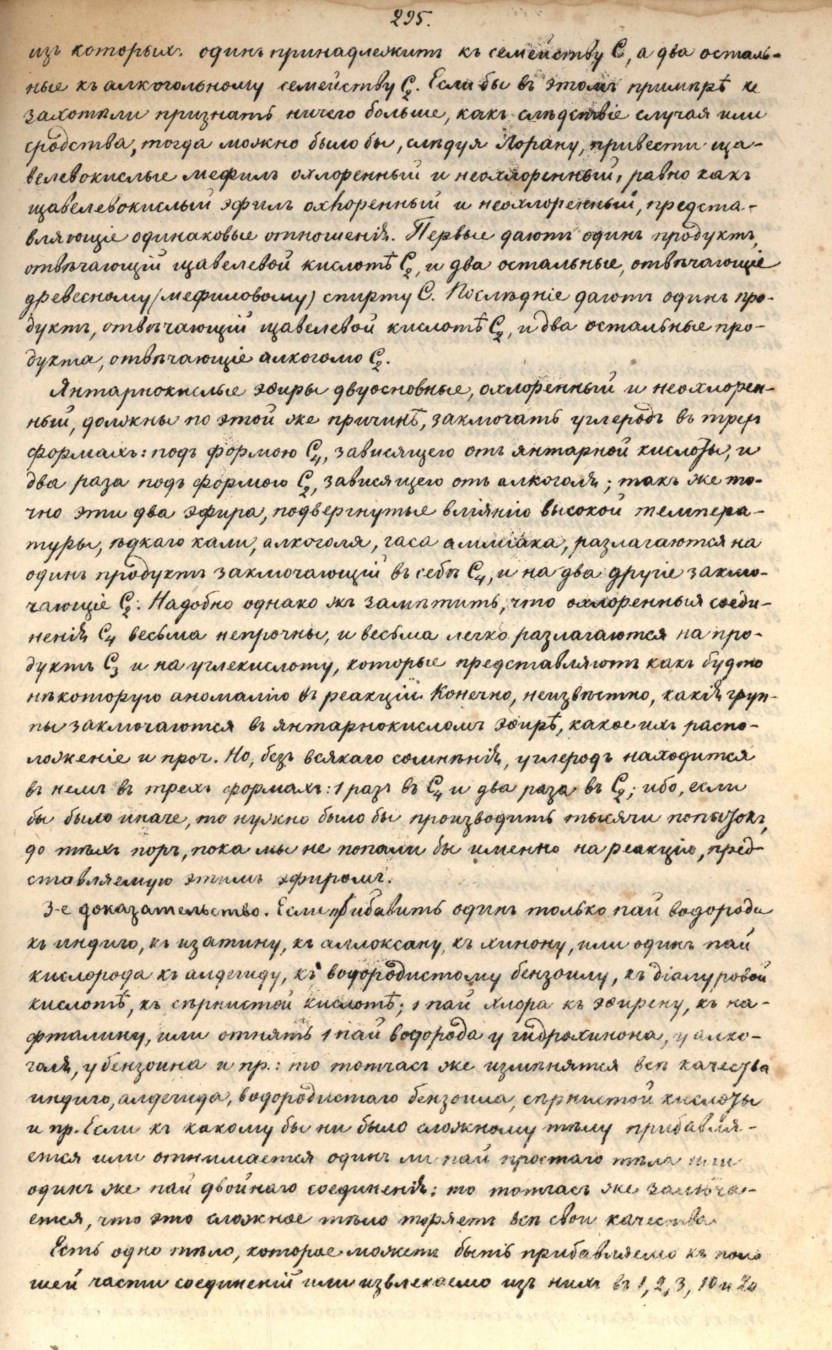 295.
изъ которыхъ одинъ принадлежитъ къ семейству C, а два осталь-
ные къ алкогольному семейству C₂. Если бы въ этомъ примѣрѣ не
захотѣли признать ничего больше, какъ слѣдствіе случая или
сродства, тогда можно было бы, слѣдуя Лорану, привести ща-
велевокислые мефилъ охлоренный и неохлоренный, равно какъ
щавелевокислый эфилъ охлоренный и неохлоренный, предста-
вляющіе одинаковые отношенія. Первые даютъ одинъ продуктъ,
отвѣчающій щавелевой кислотѣ C₂, и два остальные, отвѣчающіе
древесному (мефиловому) спирту C. Послѣдніе даютъ одинъ про-
дуктъ, отвѣчающій щавелевой кислотѣ C₂, и два остальные про-
дукта, отвѣчающіе алкоголю C₂.
Янтарнокислые эѳиры двуосновные, охлоренный и неохлорен-
ный, должны по этой же причинѣ, заключать углеродъ въ трехъ
формахъ: подъ формою C₄, зависящего отъ янтарной кислоты, и
два раза подъ формою C₂, зависящего отъ алкоголя; такъ же то-
чно эти два эфира, подвергнутые вліянію высокой темпера-
туры, ѣдкаго кали, алкоголя, газа амміака, разлагаются на
одинъ продуктъ заключающій въ себѣ C₄, и на два другіе заклю-
чающіе C₂. Надобно однако жъ замѣтить, что охлоренныя соеди-
ненія C₄ весьма непрочны, и весьма легко разлагаются на про-
дуктъ C₃ и на углекислоту, которые представляютъ какъ будто
нѣкоторую аномалію въ реакціи. Конечно, неизвѣстно, какія груп-
пы заключаются въ янтарнокисломъ эѳирѣ, какое ихъ распо-
ложеніе и проч. Но, безъ всякаго сомнѣнія, углеродъ находится
въ немъ въ трехъ формахъ: 1 разъ въ C₄ и два раза въ C₂; ибо, если
бы было иначе, то нужно было бы производить тысячи попытокъ,
до тѣхъ поръ, пока мы не попали бы именно на реакцію, пред-
ставляемую этимъ эфиромъ.
3-е доказательство. Если прибавить одинъ только пай водорода
къ индиго, къ изатину, къ аллоксану, къ хинону, или одинъ пай
кислорода къ алдегиду, къ водородистому бензоилу, къ діалуровой
кислотѣ, къ сѣрнистой кислотѣ; 1 пай хлора къ эѳирену, къ на-
фталину, или отнять 1 пай водорода у гидрохинона, у алко-
голя, у бензоина и пр.: то тотчасъ же измѣнятся всѣ качества
индиго, алдегида, водородистаго бензоила, сѣрнистой кислоты
и пр. Если къ какому бы ни было сложному тѣлу прибавля-
ется или отнимается одинъ ли пай простаго тѣла или
одинъ же пай двойнаго соединенія: то тотчасъ же замѣча-
ется, что это сложное тѣло теряетъ всѣ свои качества.
Есть одно тѣло, которое можетъ быть прибавляемо къ
шей части соединеній или извлекаемо изъ нихъ въ 1, 2, 3, 10 и 20